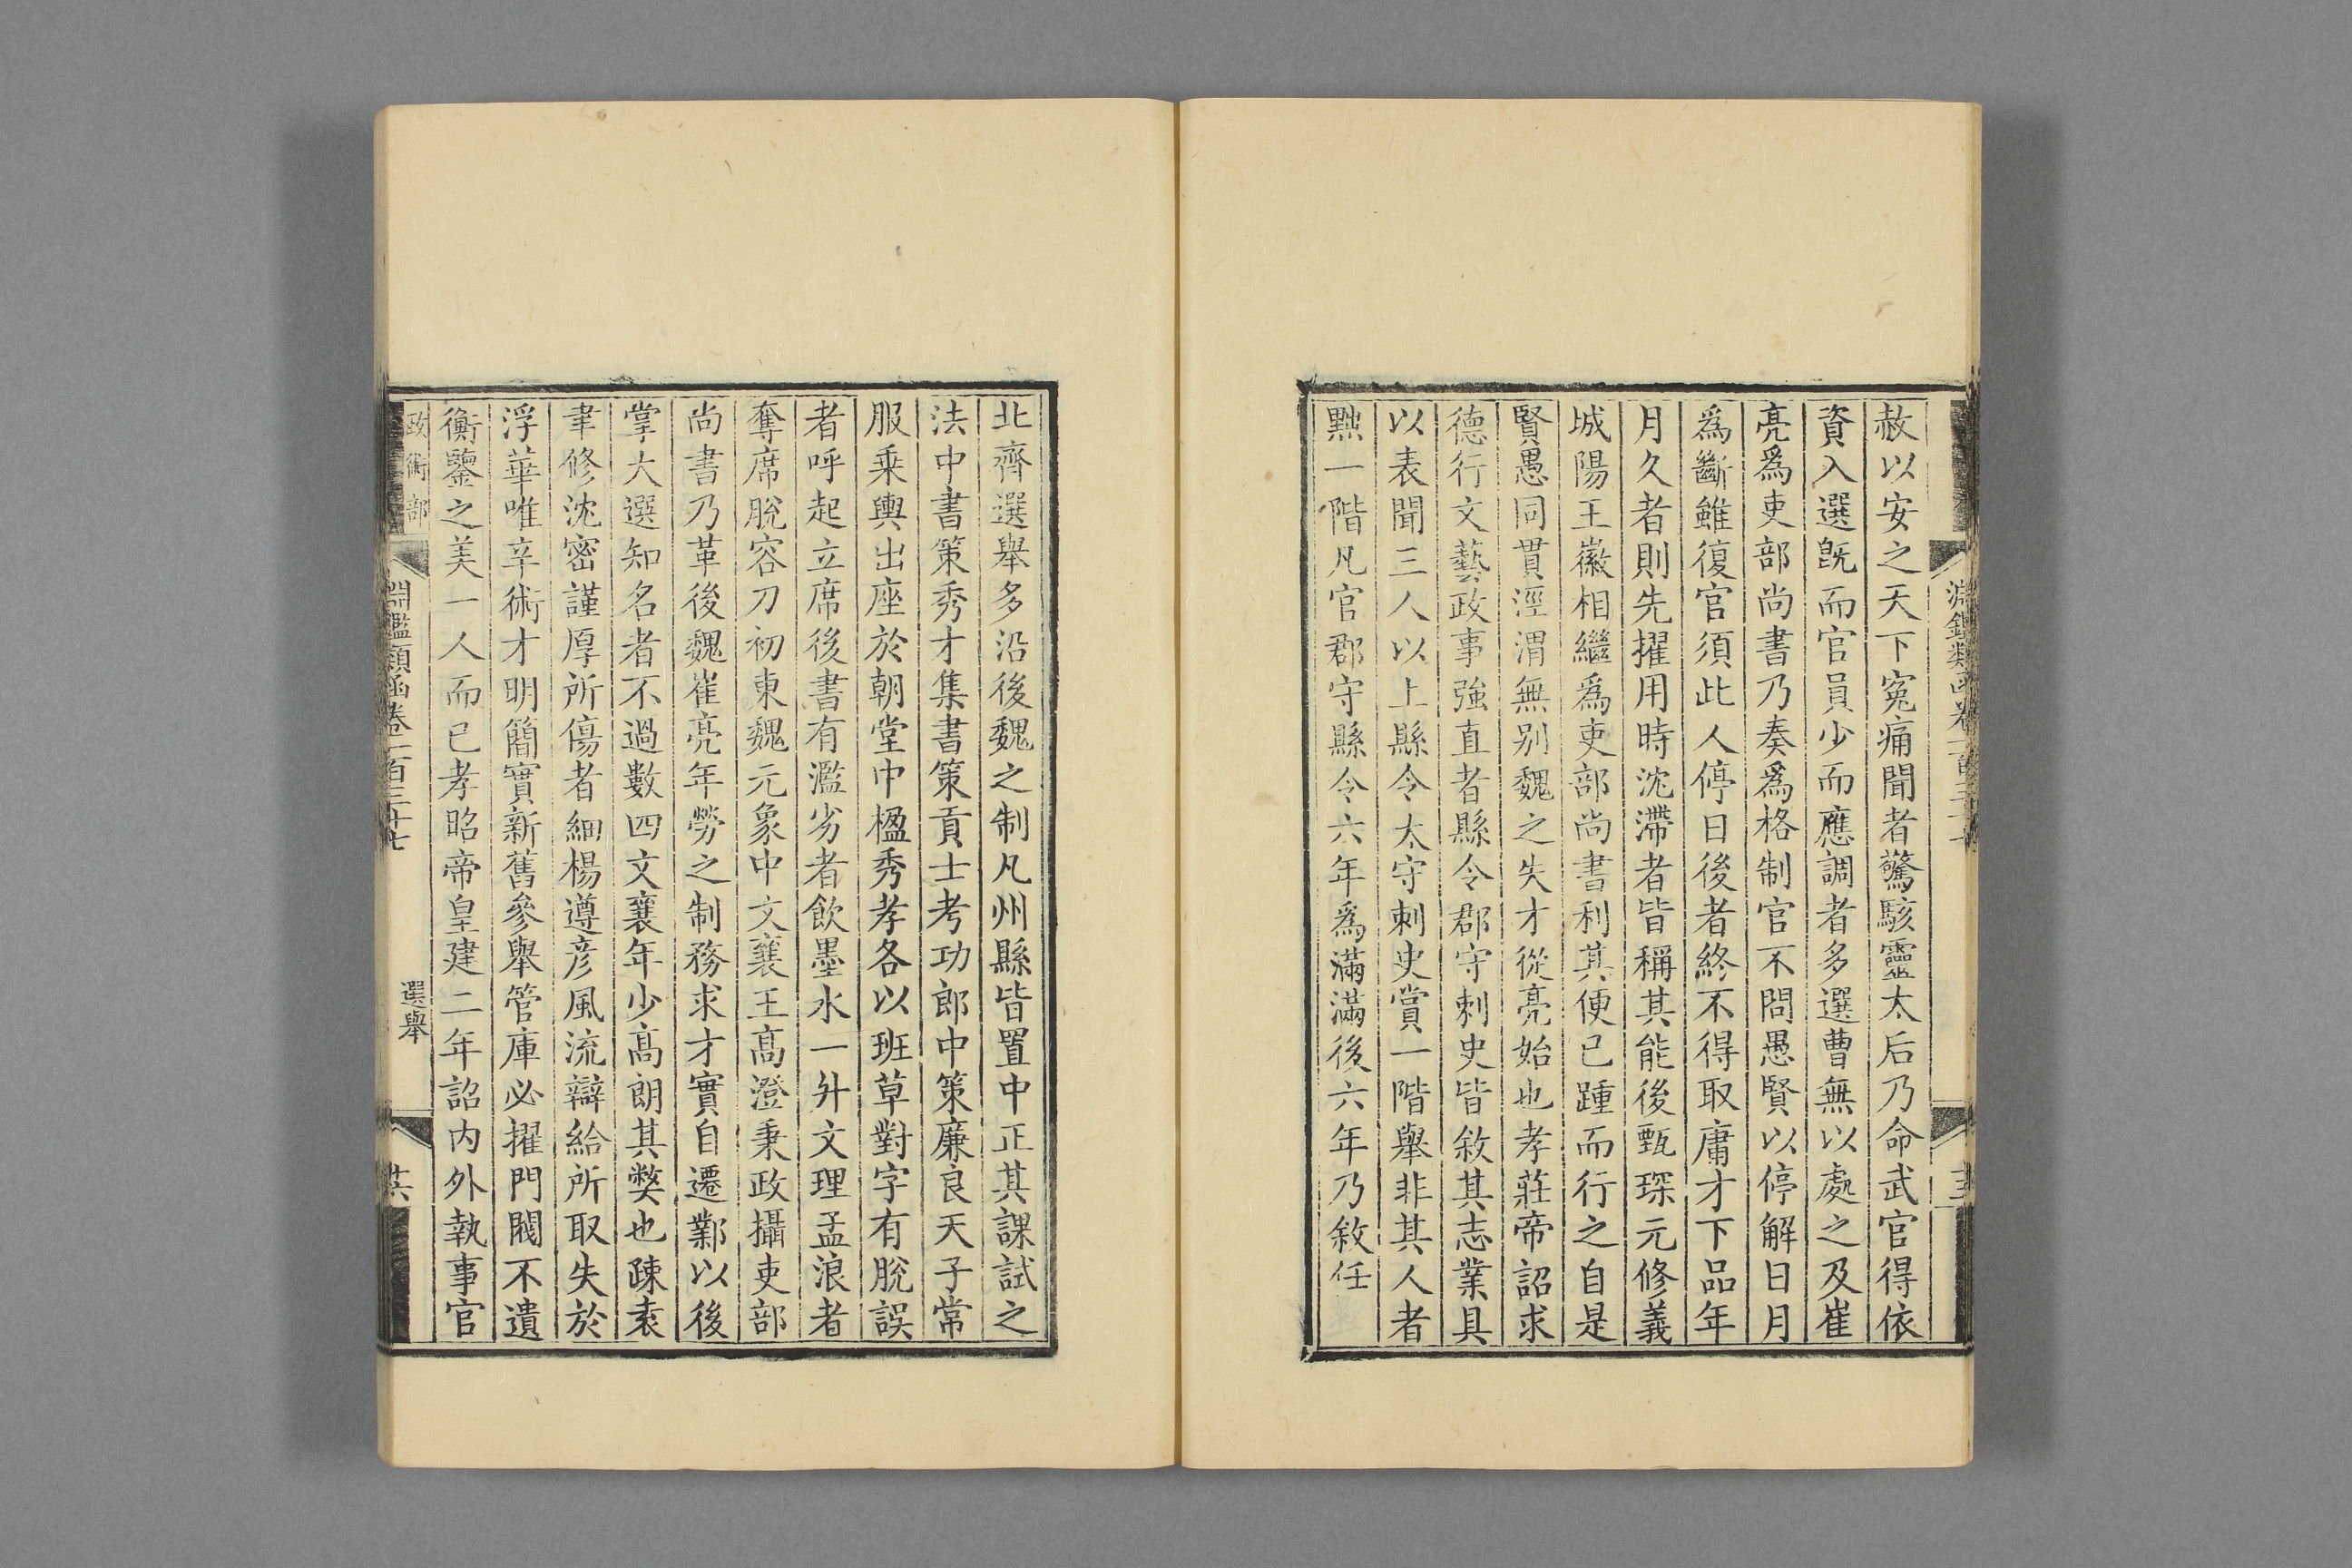 赦以安之天下寃痛聞者驚駭靈太后乃命武官得依
資入選旣而官員少而應調者多選曹無以處之及崔
亮爲吏部尚書乃奏爲格制官不問愚賢以停解日月
爲斷雖復官須此人停日後者終不得取庸才下品年
月久者則先擢用時沈滯者皆稱其能後甄琛元修義
城陽王徽相繼爲吏部尚書利其便已踵而行之自是
賢愚同貫涇渭無别魏之失才從亮始也孝莊帝詔求
德行文藝政事強直者縣令郡守刺史皆敘其志業具
以表聞三人以上縣令太守刺史賞一階舉非其人者
黜一階凡官郡守縣令六年爲滿滿後六年乃敘任
北齊選舉多沿後魏之制凡州縣皆置中正其課試之
法中書策秀才集書策貢士考功郎中策廉良天子常
服乘輿出座於朝堂中楹秀孝各以班草對字有脫誤
者呼起立席後書有濫劣者飲墨水一升文理孟浪者
奪席脫容刀初東魏元象中文襄王高澄秉政攝吏部
尚書乃革後魏崔亮年勞之制務求才實自遷鄴以後
掌大選知名者不過數四文襄年少高朗其弊也疎袁
聿修沈密謹厚所傷者細楊遵彦風流辯給所取失於
浮華唯辛術才明簡實新舊參舉管庫必擢門閥不遺
衡鑒之美一人而已孝昭帝皇建二年詔内外執事官
政術部
淵鑑類函卷一百三十七
選舉